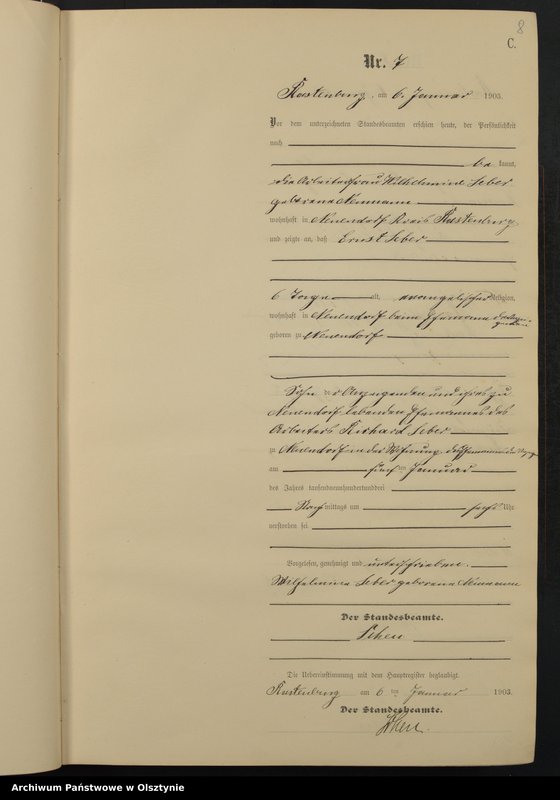 8
C.
Nr. 7
Rastenburg, am 6. Januar 1903.
Vor dem unterzeichneten Standesbeamten erschien heute, der Persönlichkeit
nach
be kannt,
die Arbeiterfrau Wilhelmine Leber
geborene Neumann
wohnhaft in Neuendorf Kreis Rastenburg
und zeigte an, daß Ernst Leber
6 Tage alt, evangelischer Religion,
wohnhaft in Neuendorf beim Ehemanne der Anzei-
genden
geboren zu Neuendorf
Sohn der Anzeigenden und ihres zu
Neuendorf lebenden Ehemannes des
Arbeiters Richard Leber
zu Neuendorf in der Wohnung des Ehemannes der
am fünften Januar
des Jahres tausendneunhundertunddrei
Nachmittags um sechs Uhr
verstorben sei
Vorgelesen, genehmigt und unterschrieben.
Wilhelmine Leber geborene Neumann
Der Standesbeamte.
Die Uebereinstimmung mit dem Hauptregister beglaubigt.
Rastenburg am 6ten Januar 1903.
Der Standesbeamte.
Archiwum Państwowe w Olsztynie